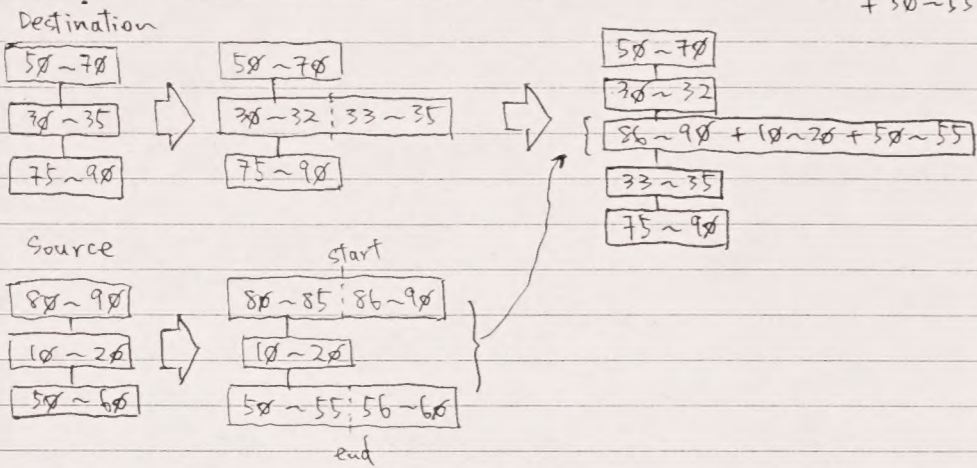 + 50~55
Destination
50~70
30~35
75~90
50~70
30~32 33~35
75~90
50~70
30~32
86~90 + 10~20 + 50~55
33~35
75~90
Source
80~90
10~20
50~60
start
80~85 86~90
10~20
50~55 56~60
end